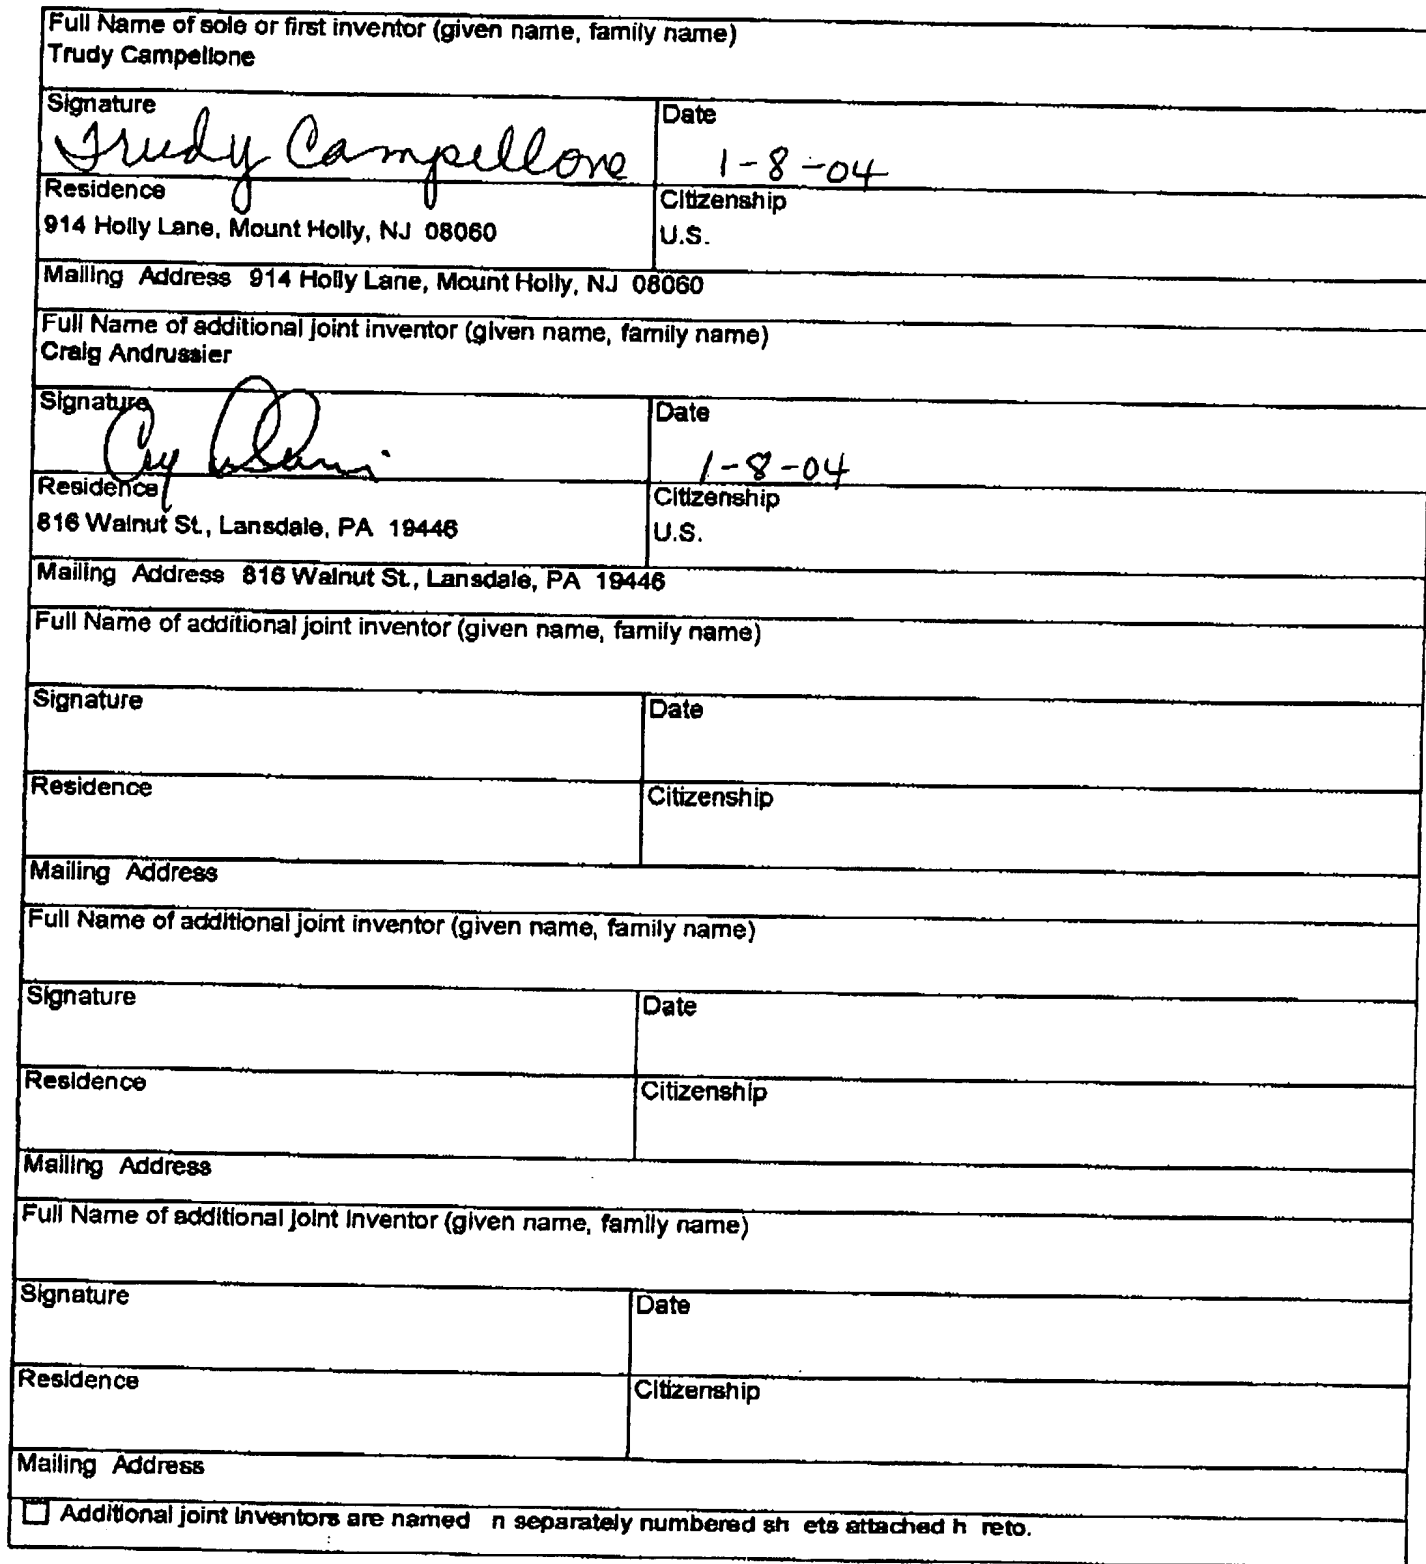 Full Name of sole or first inventor (given name, family name)
Trudy Campellone
Signature
Trudy Campellone
Date
1-8-04
Residence
914 Holly Lane, Mount Holly, NJ 08060
Citizenship
U.S.
Mailing Address 914 Holly Lane, Mount Holly, NJ 08060
Full Name of additional joint inventor (given name, family name)
Craig Andrussier
Signature
Date
1-8-04
Residence
816 Walnut St., Lansdale, PA 19446
Citizenship
U.S.
Mailing Address 816 Walnut St., Lansdale, PA 19446
Full Name of additional joint inventor (given name, family name)
Signature
Date
Residence
Citizenship
Mailing Address
Full Name of additional joint inventor (given name, family name)
Signature
Date
Residence
Citizenship
Mailing Address
Full Name of additional joint inventor (given name, family name)
Signature
Date
Residence
Citizenship
Mailing Address
Additional joint inventors are named n separately numbered sh ets attached h reto.